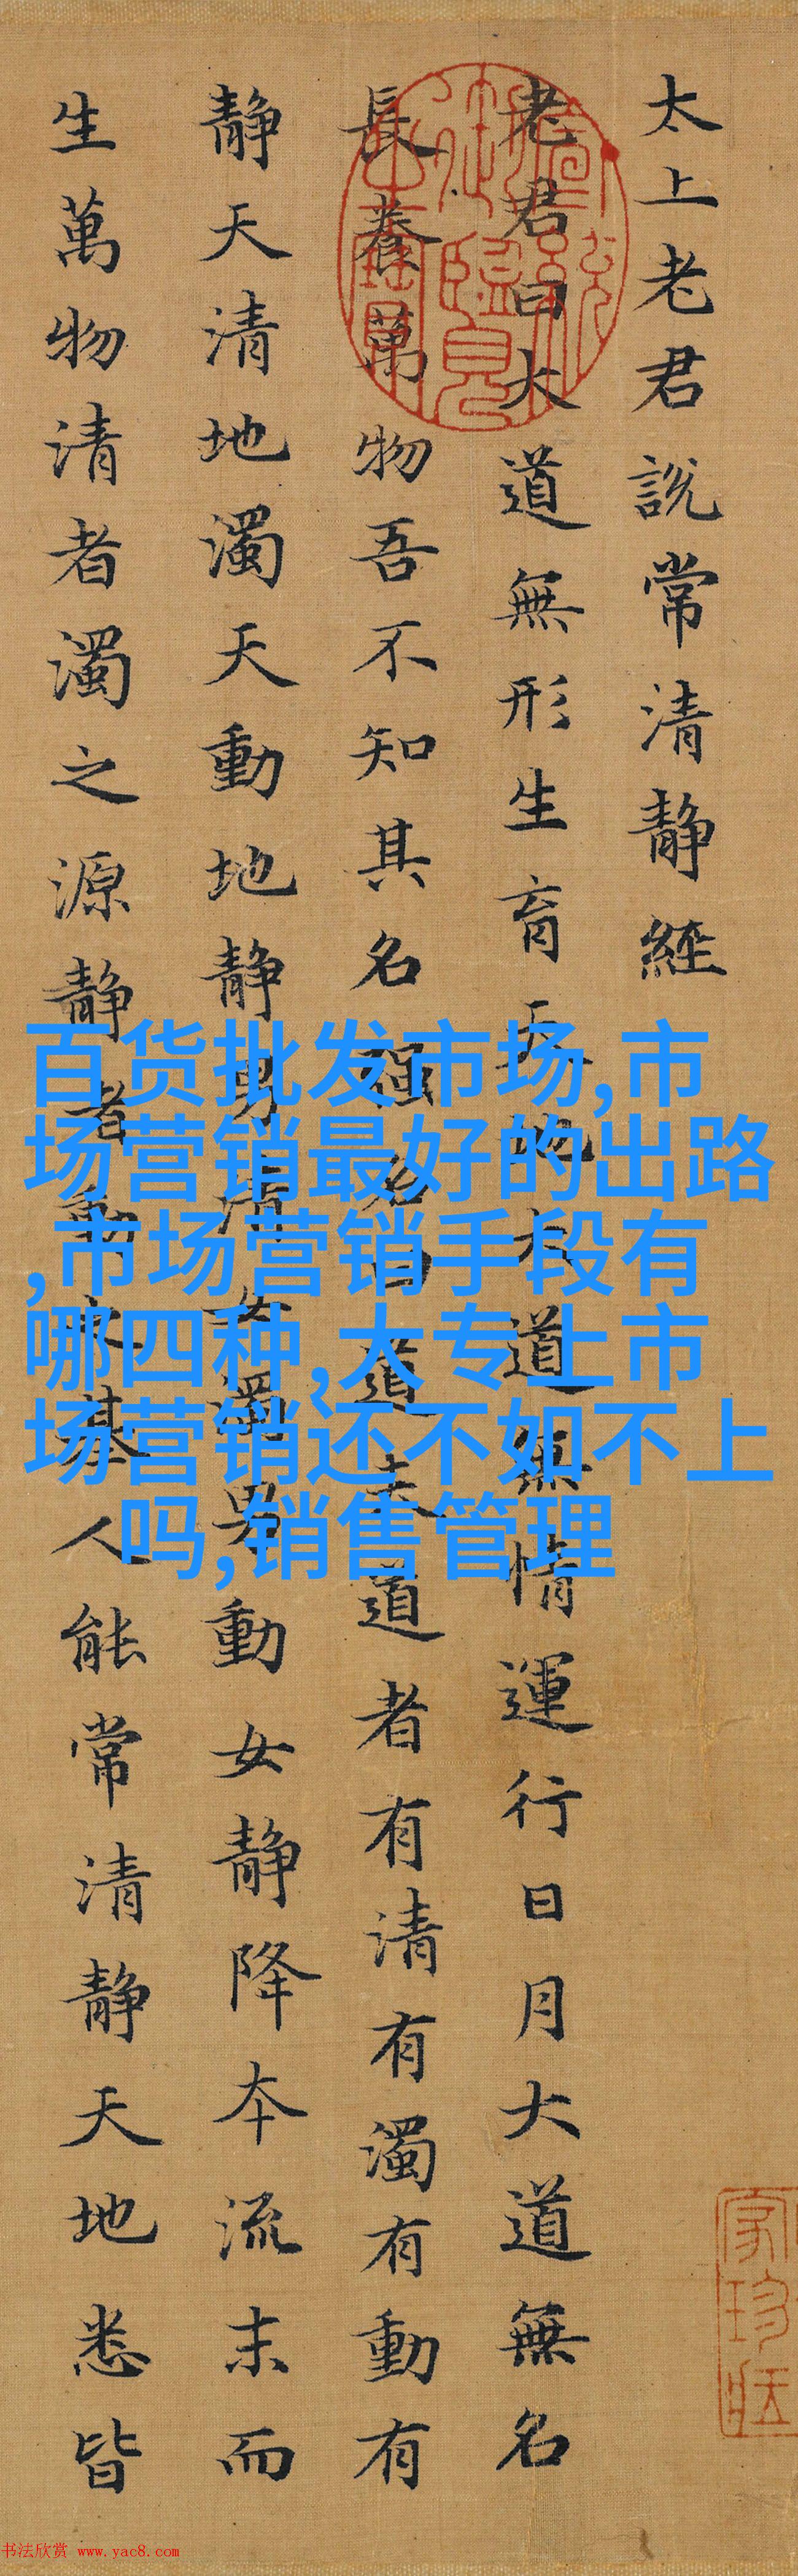 太上老君説常清静經
老君曰大道無形生育天地大道無情運行日月大道無名
長養萬物吾不知其名强名曰道夫道者有清有濁有動有
静天清地濁天動地静男清女濁男動女静降本流末而
生萬物清者濁之源静者動之基人能常清静天地悉皆
宣統御覽之寶
百货批发市场,市
场营销最好的出路
,市场营销手段有
哪四种,大专上市
场营销还不如不上
吗,销售管理
书法欣赏 www.yac8.com